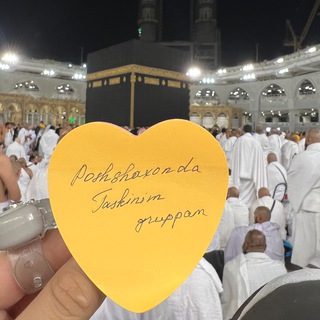 Poshshoxonda
Taskinim
gruppam